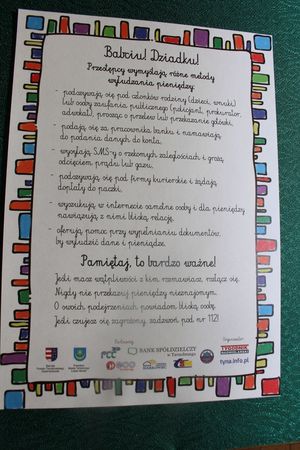 Babciu! Dziadku!
Przestępcy wymyślają różne metody
wyłudzania pieniędzy:
- podszywają się pod członków rodziny (dzieci, wnuki)
lub osoby zaufania publicznego (policjant, prokurator,
adwokat), prosząc o przelew lub przekazanie gotówki,
- podają się za pracownika banku i namawiają
do podania danych do konta.
- wysyłają SMS-y o rzekomych zaległościach i grożą
odcięciem prądu lub gazu,
- podszywają się pod firmy kurierskie i żądają
dopłaty do paczki,
- wyszukują w internecie samotne osoby i dla pieniędzy
nawiązują z nimi bliską relację,
- oferują pomoc przy wypełnianiu dokumentów,
by wyłudzić dane i pieniądze.
Pamiętaj, to bardzo ważne!
Jeśli masz wątpliwości z kim rozmawiasz, rozłącz się.
Nigdy nie przekazuj pieniędzy nieznajomym.
O swoich podejrzeniach powiadom bliską osobę.
Jeśli czujesz się zagrożony, zadzwoń pod nr 112!
Partnerzy
Organizator
BANK SPÓŁDZIELCZY
w Tarnobrzegu
TYGODNIK
tyna.info.pl